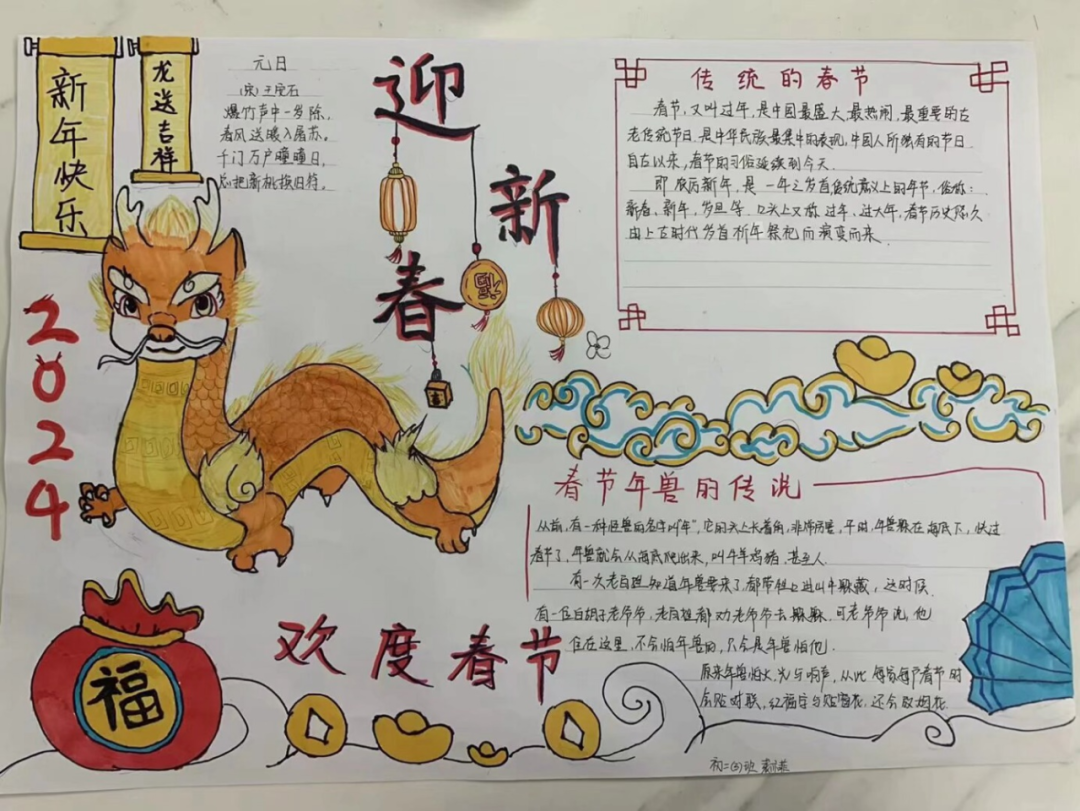 新年快乐
龙送吉祥
元日
(宋)王安石
爆竹声中一岁除，
春风送暖入屠苏。
千门万户曈曈日，
总把新桃换旧符。
迎
新
春
福
2024
传统的春节
春节，又叫过年，是中国最盛大，最热闹，最重要的古
老传统节日，是中华民族最集中的表现，中国人所独有的节日.
自古以来，春节的习俗延续到今天.
即农历新年，是一年之岁首传统意义上的年节，俗称：
新春、新年，岁旦等. 口头上又称过年，过大年，春节历史悠久
由上古时代岁首祈年祭祀而演变而来.
春节年兽的传说
从前，有一种怪兽的名字叫"年"，它的头上长着角，非常厉害，平时，年兽躲在海底下，快过
春节了，年兽就会从海底爬出来，叫牛羊鸡猪，甚至人.
有一次老百姓知道年兽要来了，都带往上进山中躲藏，这时候
有一位白胡子老爷爷，老百姓都劝老爷爷去躲躲，可老爷爷说，他
住在这里，不会怕年兽的，只会是年兽怕他！
原来年兽怕火，光与响声，从此每家每户春节时
会贴对联，红福字与贴窗花，还会放烟花.
欢度春节
福
初二(3)班